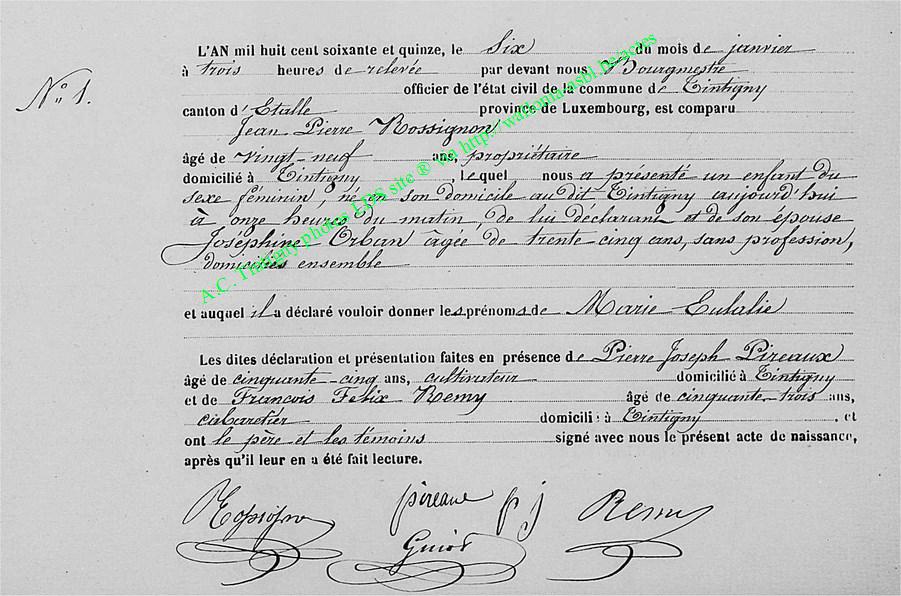 L'AN mil huit cent soixante et quinze, le Six du mois de janvier
N° 1.
à trois heures de relevée par devant nous Bourgmestre
officier de l'état civil de la commune de Tintigny
canton d'Etalle province de Luxembourg, est comparu
Jean Pierre Rossignon
âgé de vingt-neuf ans, propriétaire
domicilié à Tintigny, lequel nous a présenté un enfant du
sexe féminin, né en son domicile au dit Tintigny aujourd'hui
à onze heures du matin de lui déclarant et de son épouse
Joséphine Orban âgée de trente cinq ans, sans profession,
domiciliés ensemble
et auquel il a déclaré vouloir donner les prénoms de Marie Eulalie
Les dites déclaration et présentation faites en présence de Pierre Joseph Pireaux
âgé de cinquante-cinq ans, cultivateur domicilié à Tintigny
et de François Felix Remy âgé de cinquante-trois ans,
cabaretier domicilié à Tintigny, et
ont le père et les témoins signé avec nous le présent acte de naissance,
après qu'il leur en a été fait lecture.
pireaux p j Remy
A.C. Tintigny photos LDS site ® via http://wallonia-asbl.be/actes